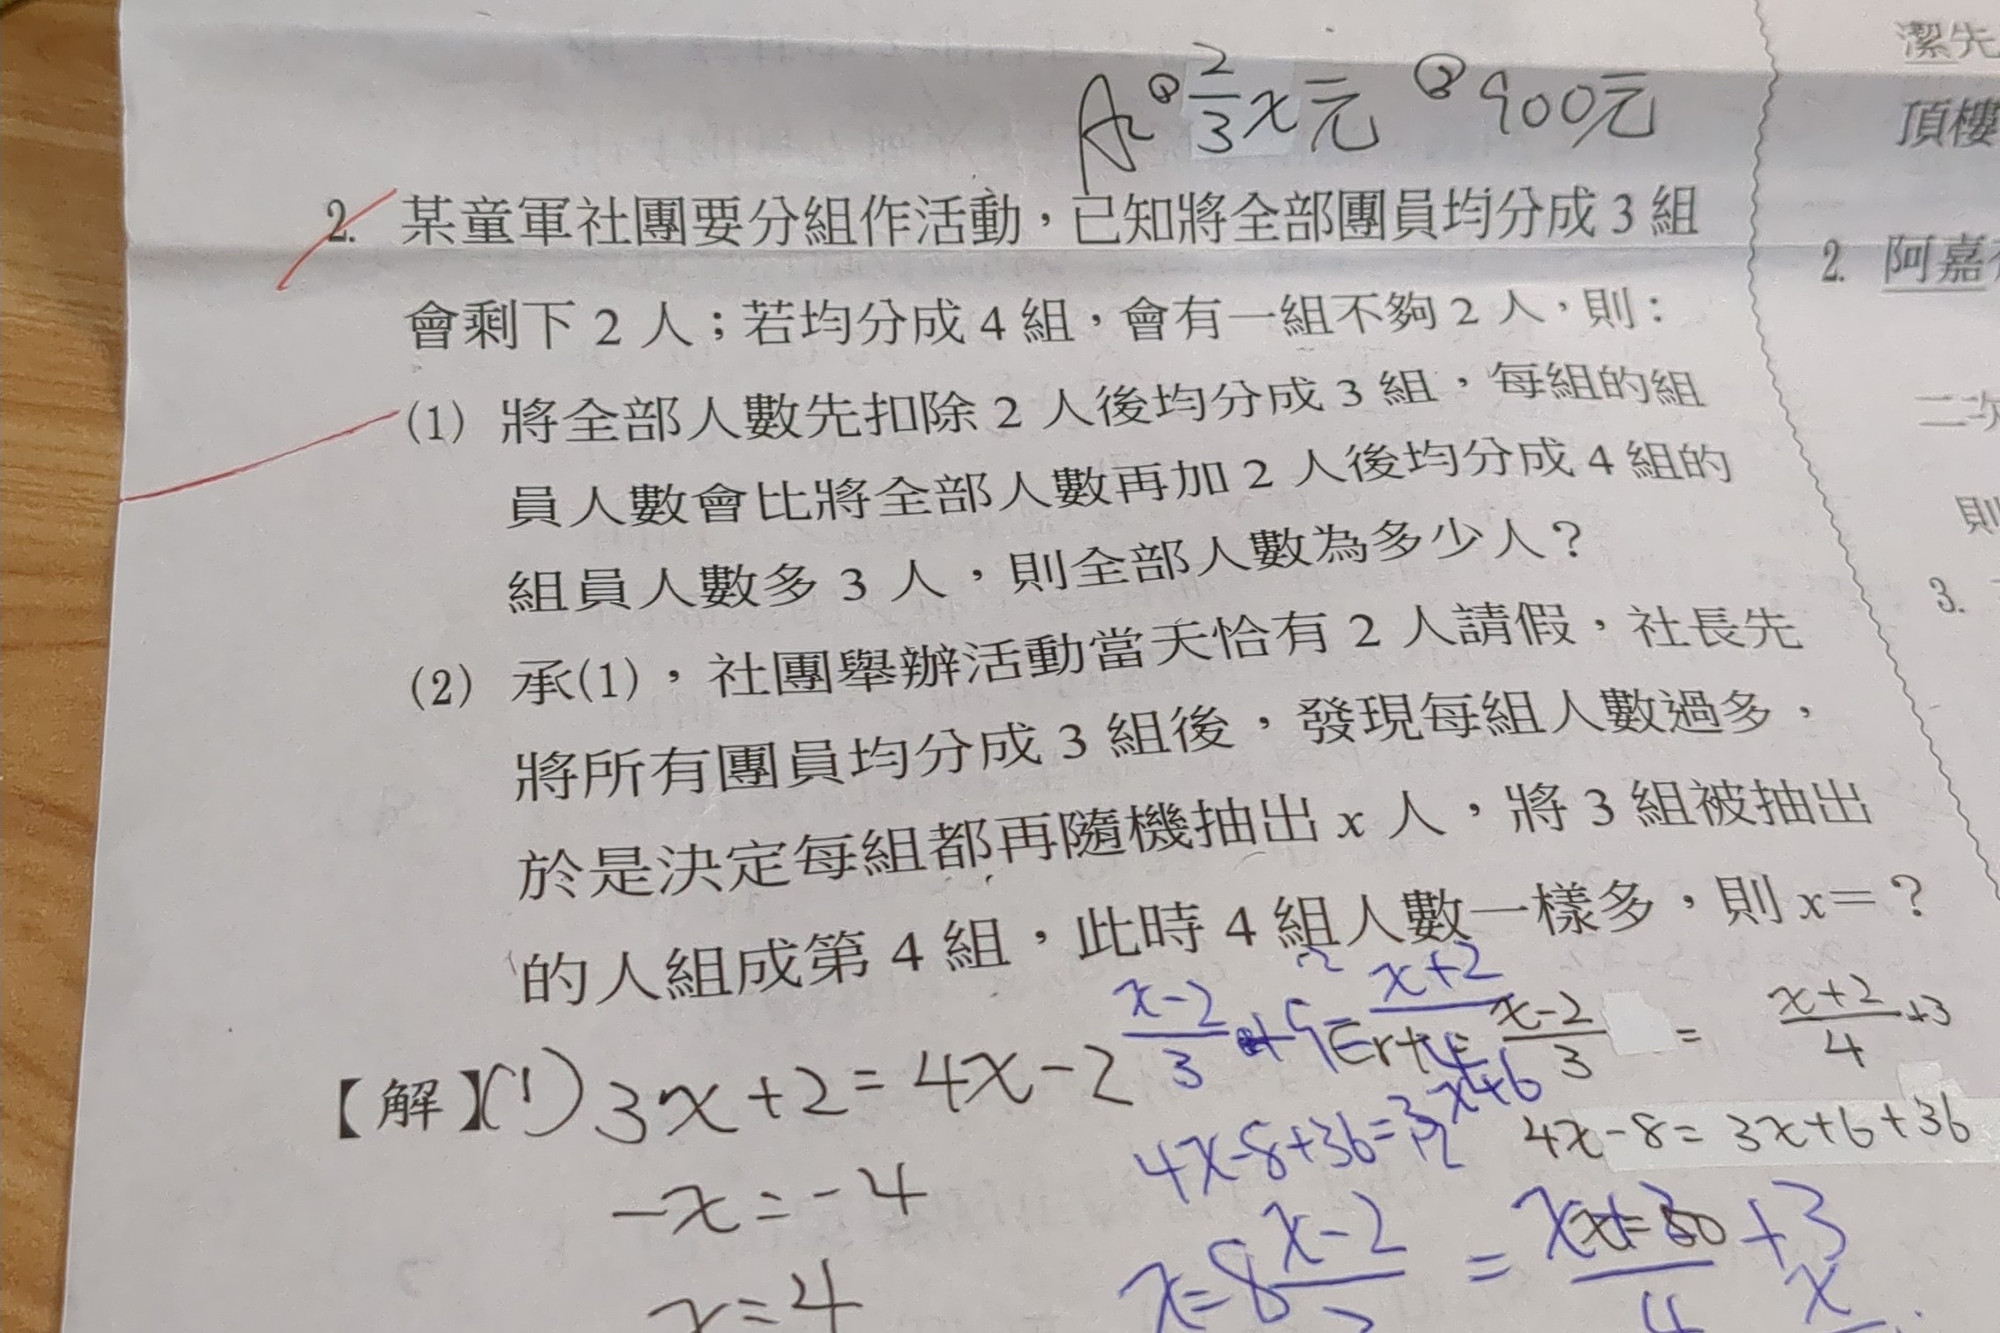 A: ① 2/3 x元 ② 900元
2. 某童軍社團要分組作活動，已知將全部團員均分成 3 組
會剩下 2 人；若均分成 4 組，會有一組不夠 2 人，則：
(1) 將全部人數先扣除 2 人後均分成 3 組，每組的組
員人數會比將全部人數再加 2 人後均分成 4 組的
組員人數多 3 人，則全部人數為多少人？
(2) 承(1)，社團舉辦活動當天恰有 2 人請假，社長先
將所有團員均分成 3 組後，發現每組人數過多，
於是決定每組都再隨機抽出 x 人，將 3 組被抽出
的人組成第 4 組，此時 4 組人數一樣多，則 x＝？
【解】(1) 3x+2=4x-2
-x=-4
x=4
x-2/3
x+2
x-2/3 = x+2/4 +3
4x-8+36=
4x-8=3x+6+36
x=8
x-2
=
+3
潔先
頂樓
2. 阿嘉
二次
則
3.